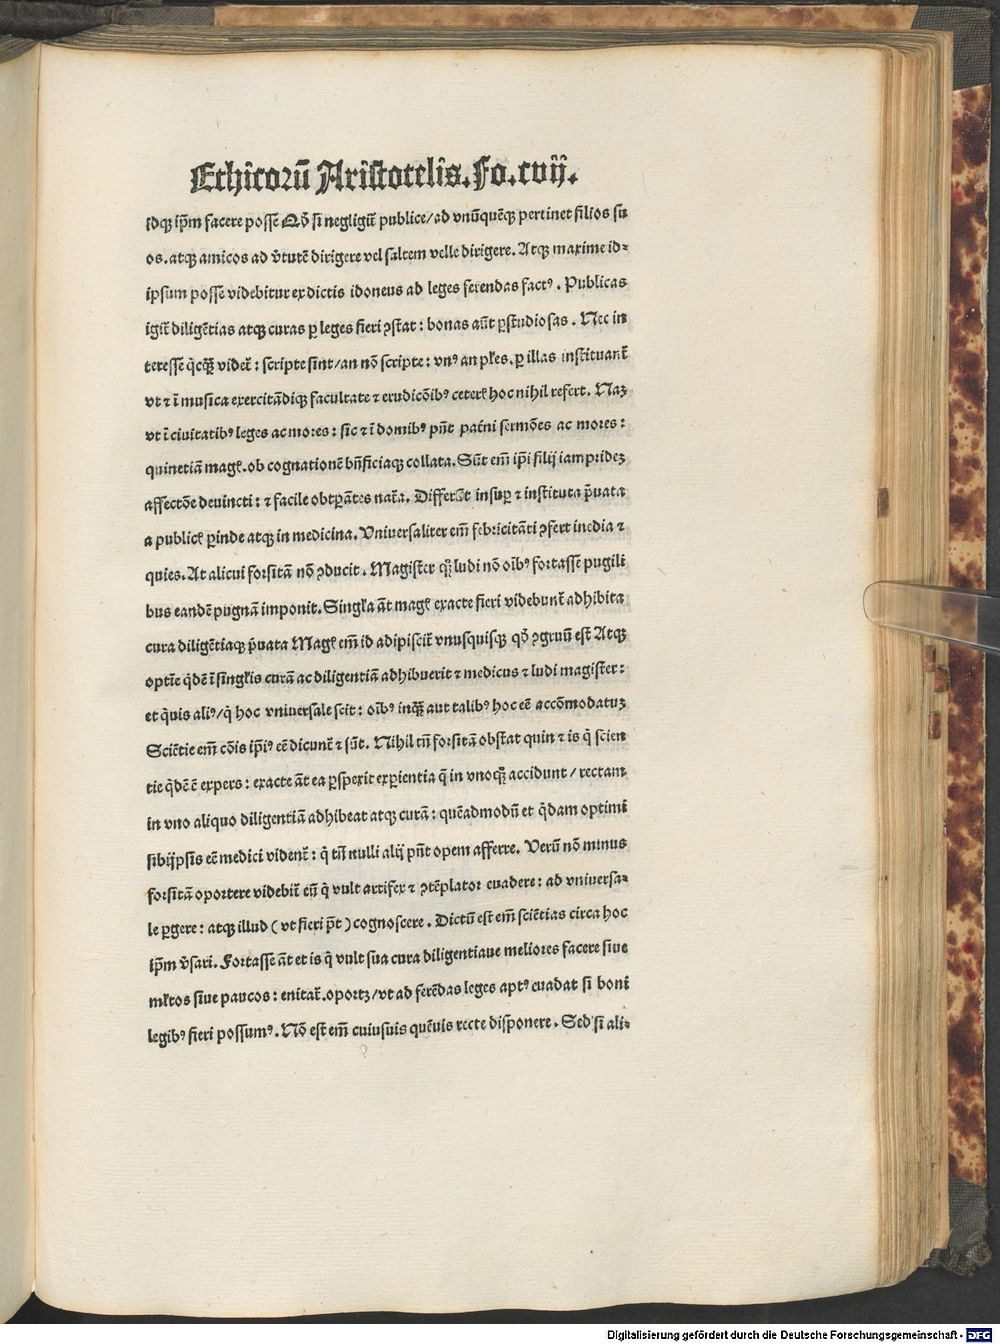 Ethicoꝝ Aristotelis. Fo. cvij.
idqꝫ ip̄m facere posse Qḋ si negligit̄ publice/ad vnūquēqꝫ pertinet filios su
os. atqꝫ amicos ad v̄tutē dirigere vel saltem velle dirigere. Atqꝫ maxime id⸗
ipsum posse videbitur ex dictis idoneus ad leges ferendas factꝰ. Publicas
igit̄ diligētias atqꝫ curas ꝑ leges fieri ꝯstat: bonas aūt ꝑ studiosas. Nec in
teresse q̇cq̄ꝫ videt̄: scripte sint/an nō scripte: vnꝰ an pl̄es. ꝑ illas instituant̄
vt ⁊ ī musica exercitādiqꝫ facultate ⁊ erudicōibꝰ ceterꝭ hoc nihil refert. Naꝫ
vt ī ciuitatibꝰ leges ac mores: sic ⁊ ī domibꝰ pn̄t pat̄ni sermōes ac mores:
quinetiā magꝭ. ob cognationē bn̄ficiaqꝫ collata. Sūt em̄ ip̄i filij iamprideꝫ
affectōe deuincti: ⁊ facile obtꝑātes nat̄a. Differūt insuꝑ ⁊ instituta p̄uata
a publicꝭ ꝑinde atqꝫ in medicina. Vniuersaliter em̄ febricitāti ꝯfert inedia ⁊
quies. At alicui forsitā nō ꝯducit. Magister qꝫ ludi nō oīibꝰ fortasse pugili
bus eandē pugnā imponit. Singl̄a āt magꝭ exacte fieri videbunt̄ adhibita
cura diligētiaqꝫ p̄uata Magꝭ em̄ id adipiscit̄ vnusquisqꝫ qḋ ꝯgruū est Atqꝫ
optīe q̇dē ī singl̄is curā ac diligentiā adhibuerit ⁊ medicus ⁊ ludi magister:
et q̇uis aliꝰ/q̇ hoc vniuersale scit: oībꝰ inq̄ꝫ aut talibꝰ hoc eē accōmodatuꝫ
Sciētie em̄ cōis ip̄iꝰ eē dicunt̄ ⁊ sūt. Nihil tn̄ forsitā obstat quin ⁊ is q̇ scien
tie q̇dē ē expers: exacte āt ea ꝑspexit exꝑientia q̄ in vnoqꝫ accidunt/rectam
in vno aliquo diligentiā adhibeat atqꝫ curā: quēadmodū et q̇dam optimi
sibijpsis eē medici vident̄: q̇ tn̄ nulli alij pn̄t opem afferre. Verū nō minus
forsitā oportere videbit̄ eū q̇ vult artifex ⁊ ꝯtēplator euadere: ad vniuersa⸗
le ꝑgere: atqꝫ illud (vt fieri p̄t) cognoscere. Dictū est em̄ sciētias circa hoc
ip̄m v̄sari. Fortasse āt et is q̇ vult sua cura diligentiaue meliores facere siue
ml̄tos siue paucos: enitat̄. oportꝫ/vt ad ferēdas leges aptꝰ euadat si boni
legibꝰ fieri possumꝰ. Nō est em̄ cuiusuis quēuis recte disponere. Sed si ali⸗
Digitalisierung gefördert durch die Deutsche Forschungsgemeinschaft - DFG